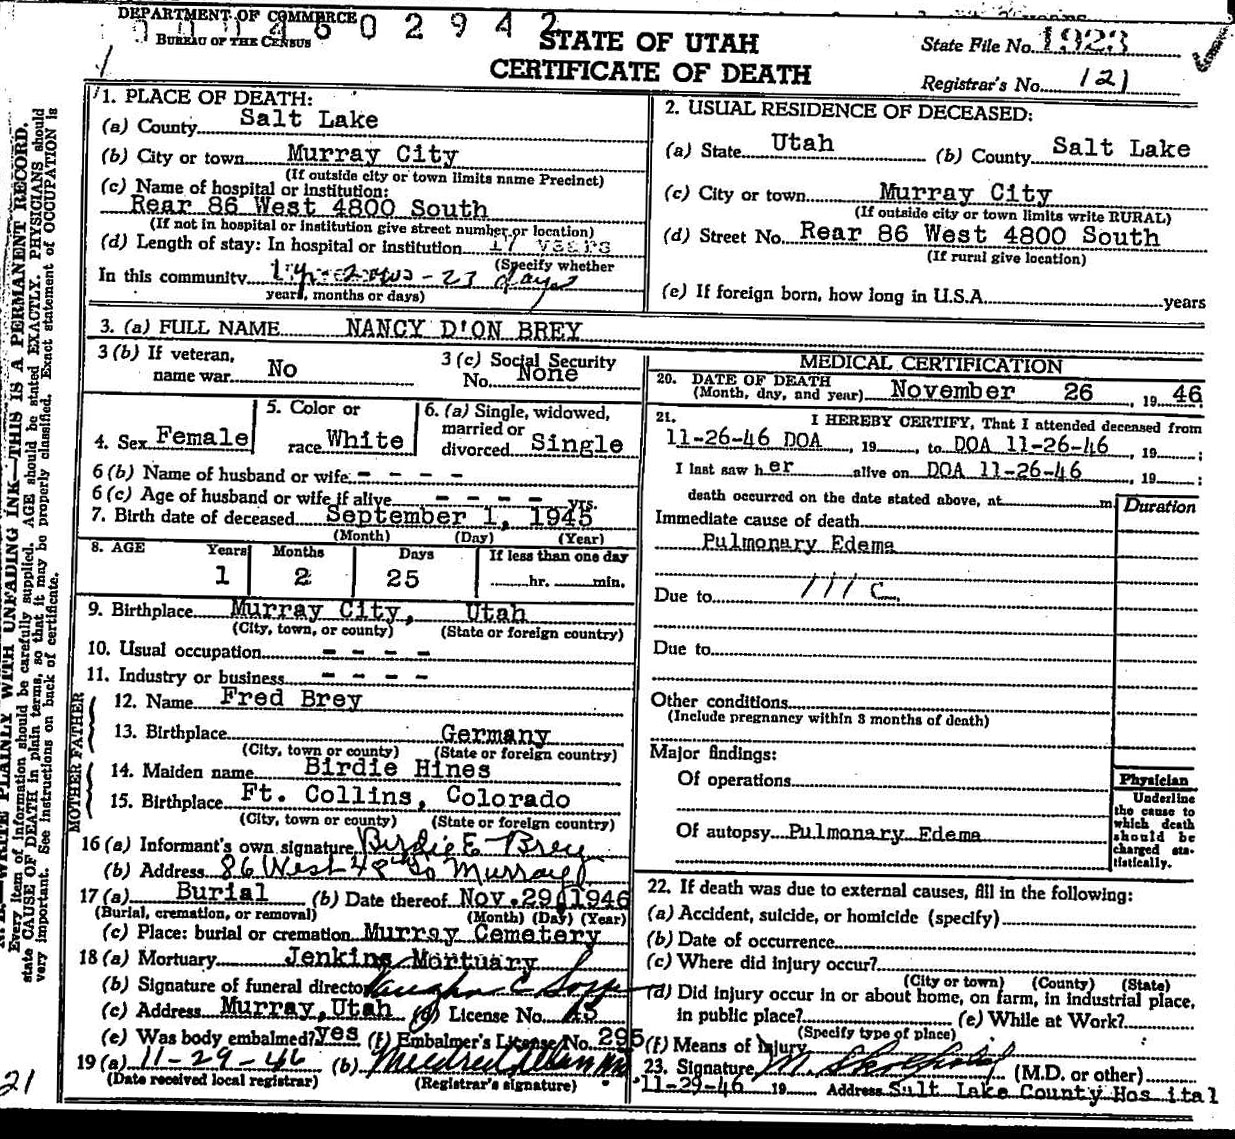 DEPARTMENT OF COMMERCE
BUREAU OF THE CENSUS
STATE OF UTAH
CERTIFICATE OF DEATH
State File No. 1923
Registrar's No. 121
1. PLACE OF DEATH:
(a) County Salt Lake
(b) City or town Murray City
(If outside city or town limits name Precinct)
(c) Name of hospital or institution:
Rear 86 West 4800 South
(If not in hospital or institution give street number or location)
(d) Length of stay: In hospital or institution 17 years
(Specify whether
In this community - 23 days
years, months or days)
2. USUAL RESIDENCE OF DECEASED:
(a) State Utah (b) County Salt Lake
(c) City or town Murray City
(If outside city or town limits write RURAL)
(d) Street No. Rear 86 West 4800 South
(If rural give location)
(e) If foreign born, how long in U.S.A. years
3. (a) FULL NAME NANCY D'ON BREY
3 (b) If veteran, name war No
3 (c) Social Security No. None
4. Sex Female
5. Color or race White
6. (a) Single, widowed, married or divorced Single
6 (b) Name of husband or wife - - - -
6 (c) Age of husband or wife if alive - - - - yrs.
7. Birth date of deceased September 1, 1945
(Month) (Day) (Year)
8. AGE Years Months Days If less than one day
1 2 25 hr. min.
9. Birthplace Murray City, Utah
(City, town, or county) (State or foreign country)
10. Usual occupation - - - -
11. Industry or business - - - -
FATHER
12. Name Fred Brey
13. Birthplace Germany
(City, town or county) (State or foreign country)
MOTHER
14. Maiden name Birdie Hines
15. Birthplace Ft. Collins, Colorado
(City, town or county) (State or foreign country)
16 (a) Informant's own signature Birdie E Brey
(b) Address 86 West 48th So Murray
17 (a) Burial (b) Date thereof Nov. 29, 1946
(Burial, cremation, or removal) (Month) (Day) (Year)
(c) Place: burial or cremation Murray Cemetery
18 (a) Mortuary Jenkins Mortuary
(b) Signature of funeral director Vaughn C
(c) Address Murray, Utah (d) License No. 45
(e) Was body embalmed? yes (f) Embalmer's License No. 295
19 (a) 11-29-46 (b) Mildred
(Date received local registrar) (Registrar's signature)
MEDICAL CERTIFICATION
20. DATE OF DEATH
(Month, day, and year) November 26, 1946
21. I HEREBY CERTIFY, That I attended deceased from
11-26-46 DOA, 19 , to DOA 11-26-46, 19 ;
I last saw her alive on DOA 11-26-46, 19 ;
death occurred on the date stated above, at m
Duration
Immediate cause of death
Pulmonary Edema
Due to 111 c.
Due to
Other conditions
(Include pregnancy within 3 months of death)
Major findings:
Of operations
Of autopsy Pulmonary Edema
Physician
Underline the cause to which death should be charged statistically.
22. If death was due to external causes, fill in the following:
(a) Accident, suicide, or homicide (specify)
(b) Date of occurrence
(c) Where did injury occur?
(City or town) (County) (State)
(d) Did injury occur in or about home, on farm, in industrial place,
in public place? (e) While at Work?
(Specify type of place)
(f) Means of injury
23. Signature M. (M.D. or other)
11-29-46 19 Address Salt Lake County Hos ital
WRITE PLAINLY WITH UNFADING INK—THIS IS A PERMANENT RECORD.
Every item of information should be carefully supplied. AGE should be stated EXACTLY. PHYSICIANS should
state CAUSE OF DEATH in plain terms, so that it may be properly classified. Exact statement of OCCUPATION is
very important. See instructions on back of certificate.
21